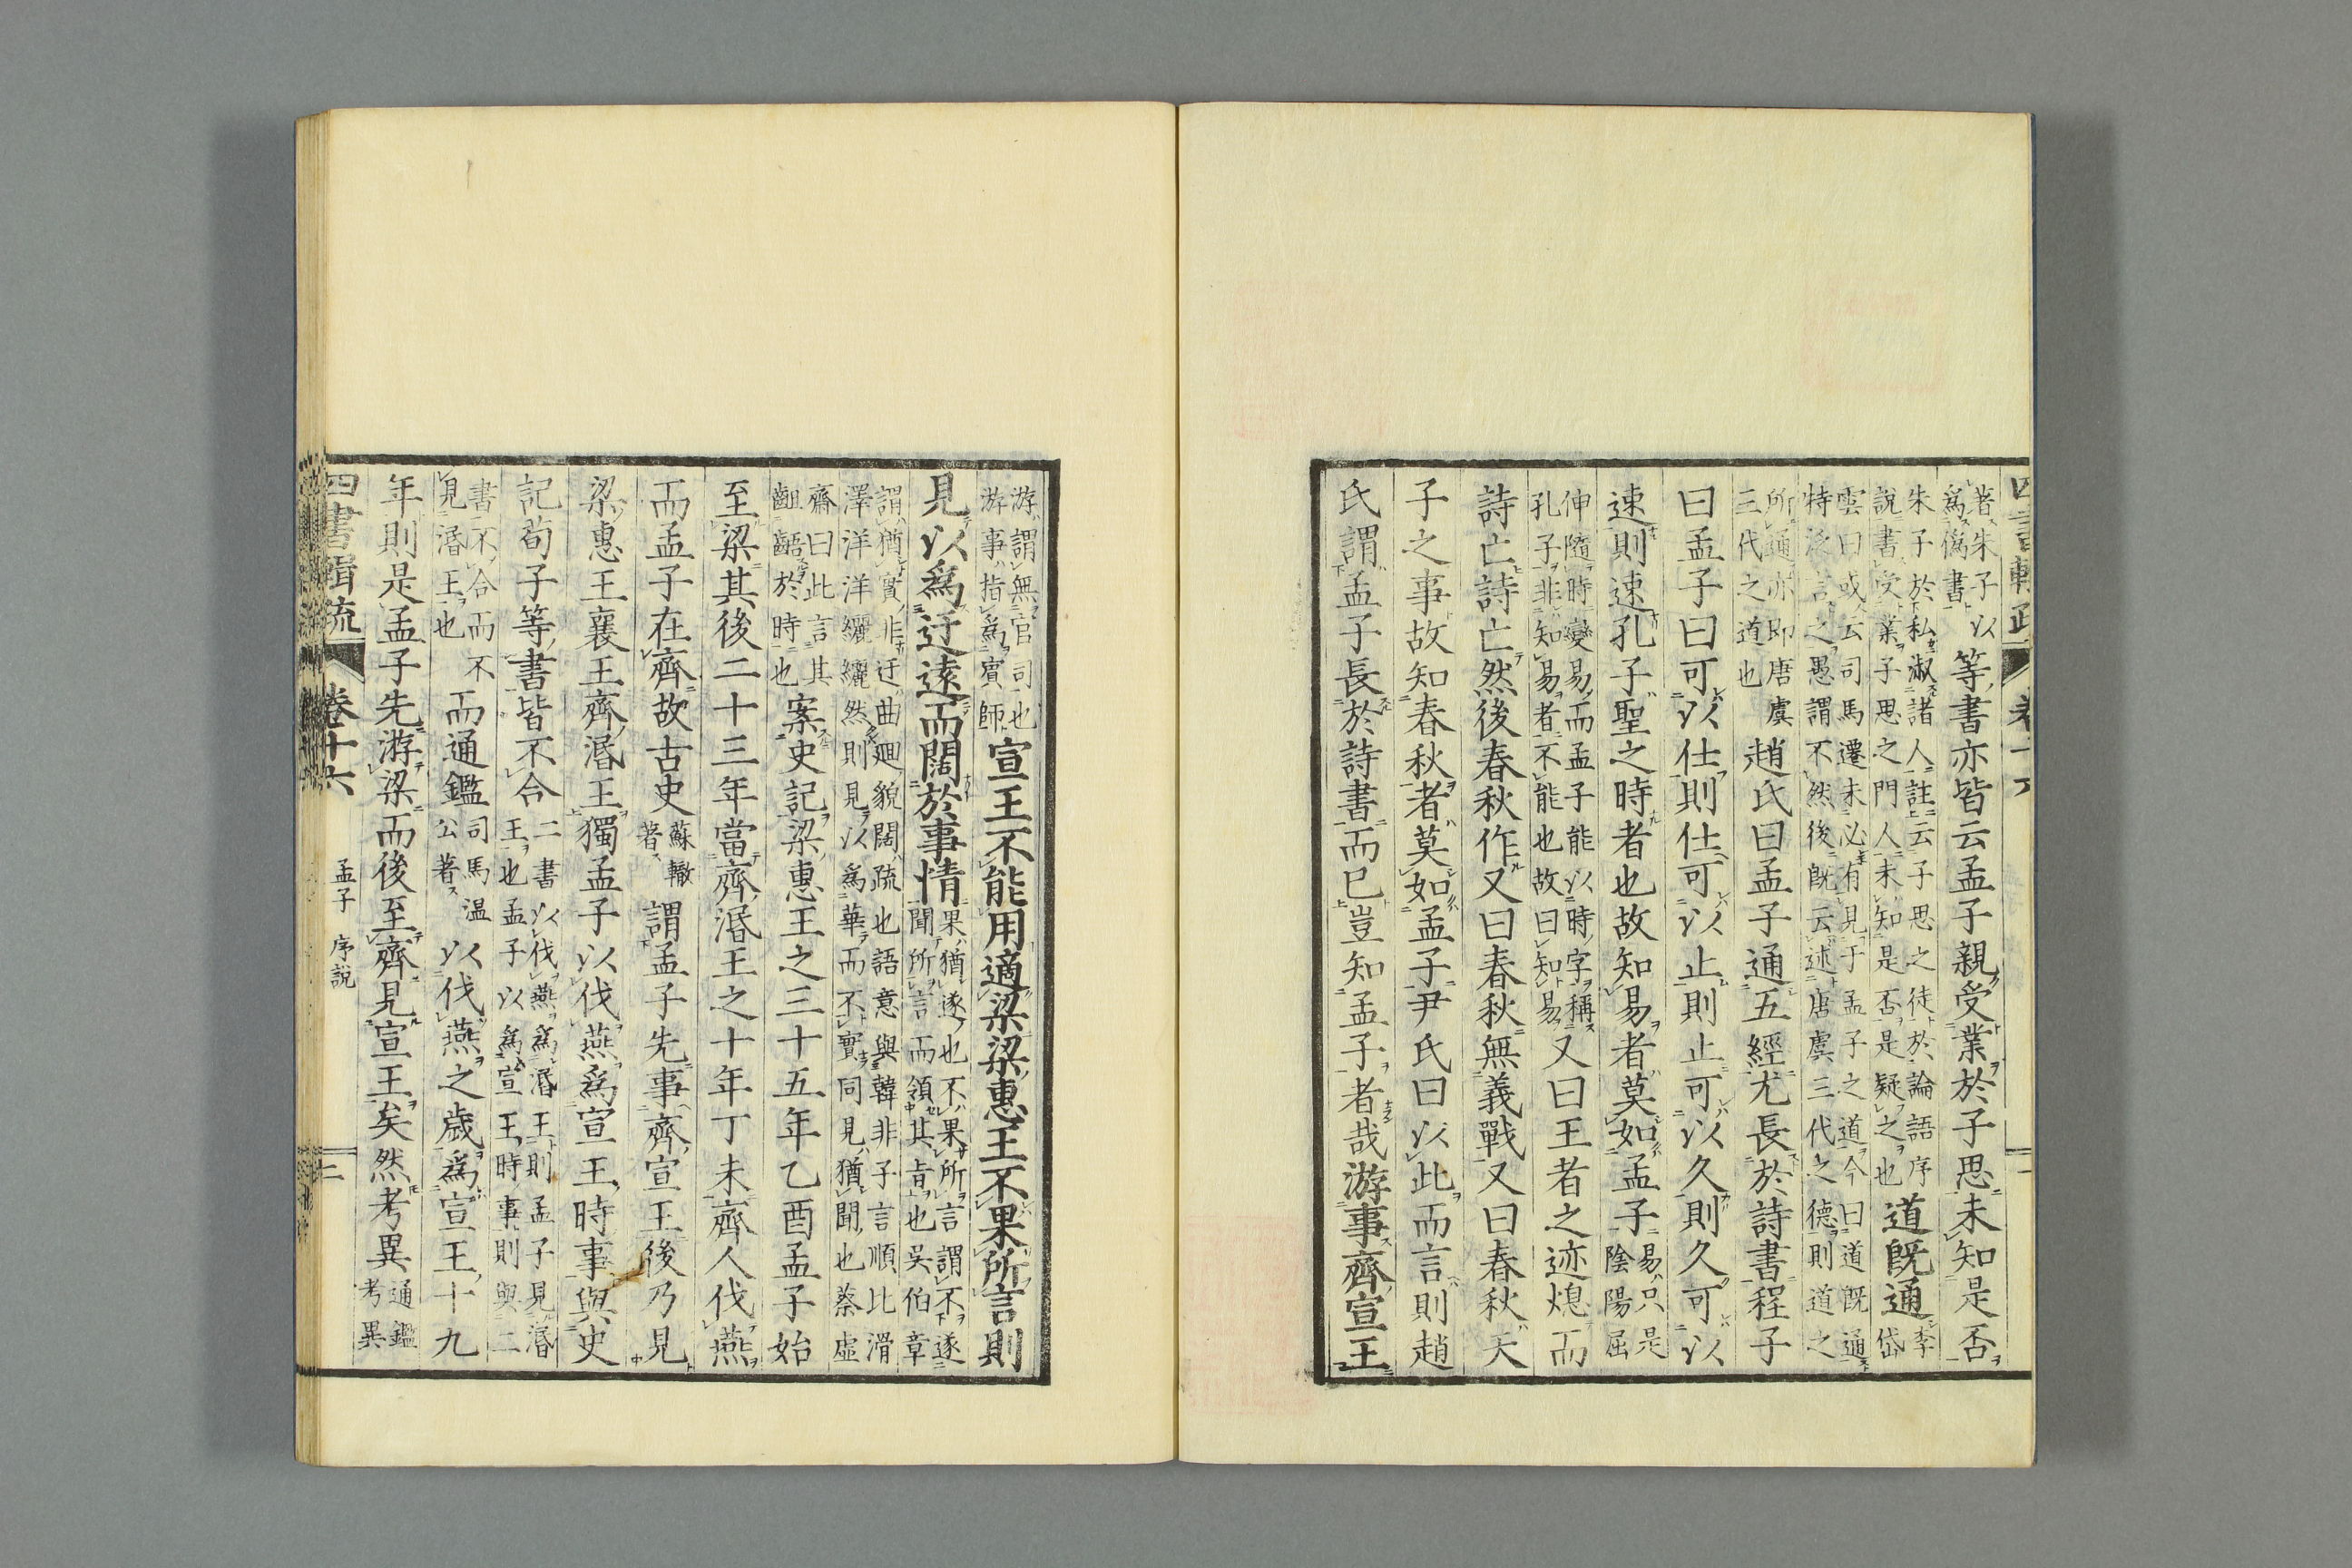 著朱子以
爲僞書
等書亦皆云孟子親受業於子思未知是否
朱子於私淑諸人註云子思之徒於論語序
說書受業子思之門人未知是否是疑之也
道既通
李
岱
雲曰或云司馬遷未必有見于孟子之道今曰道既通
特泛言之愚謂不然後既云述唐虞三代之德則道之
所通亦即唐虞
三代之道也
趙氏曰孟子通五經尤長於詩書程子
曰孟子曰可以仕則仕可以止則止可以久則久可以
速則速孔子聖之時者也故知易者莫如孟子
易只是
陰陽屈
伸隨時變易而孟子能以時字稱
孔子非知易者不能也故曰知易
又曰王者之迹熄而
詩亡詩亡然後春秋作又曰春秋無義戰又曰春秋天
子之事故知春秋者莫如孟子尹氏曰以此而言則趙
氏謂孟子長於詩書而已豈知孟子者哉游事齊宣王
游謂無官司也
游事指爲賓師
宣王不能用適梁梁惠王不果所言則
見以爲迂遠而闊於事情
果猶遂也不果所言謂不遂
聞所言而領其旨也吳伯章
謂猶實非迂曲迴貌闊疏也語意與韓非子言順比滑
澤洋洋纚纚然則見以爲華而不實同見猶聞也蔡虛
齋曰此言其
齟齬於時也
案史記梁惠王之三十五年乙酉孟子始
至梁其後二十三年當齊湣王之十年丁未齊人伐燕
而孟子在齊故古史
蘇轍
著
謂孟子先事齊宣王後乃見
梁惠王襄王齊湣王獨孟子以伐燕爲宣王時事與史
記荀子等書皆不合
二書以伐燕爲湣王則孟子見湣
王也孟子以爲宣王時事則與二
書不合而不
見湣王也
而通鑑
司馬温
公著
以伐燕之歲爲宣王十九
年則是孟子先游梁而後至齊見宣王矣然考異
通鑑
考異
四書輯疏
卷十六
孟子 序說
二